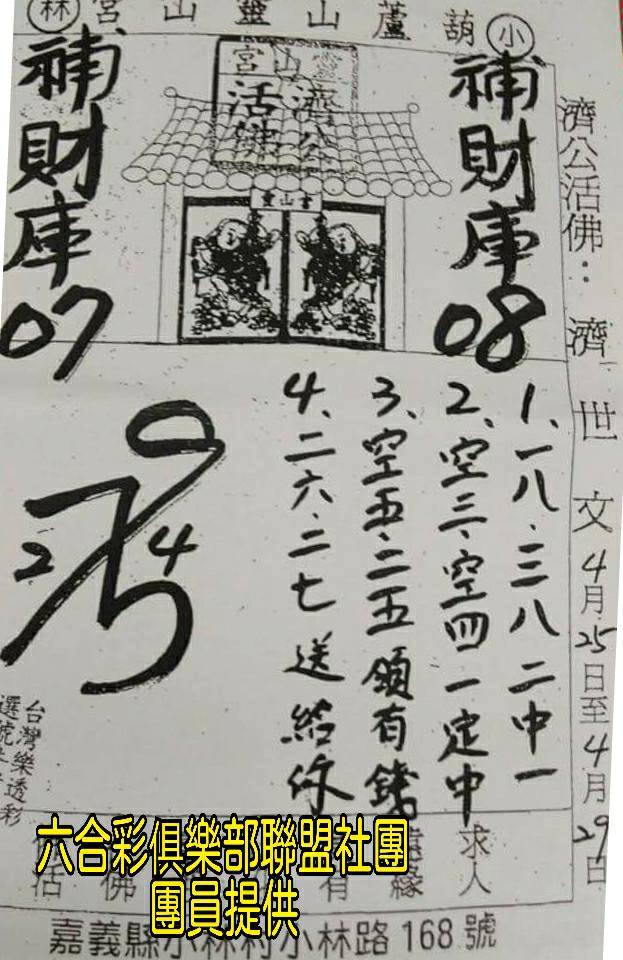 小葫蘆山靈山宮林
濟公活佛：濟世文4月25日至4月29日
補財庫
08
補財庫
07
靈山宮
濟公
活佛
1、一八．三八二中一
2、空三、空四一定中
3、空五．二五領有錢
4、二六．二七送給你
2
4
台灣樂透彩
選號
求人
有緣
活佛
六合彩俱樂部聯盟社團
團員提供
嘉義縣小林村小林路168號